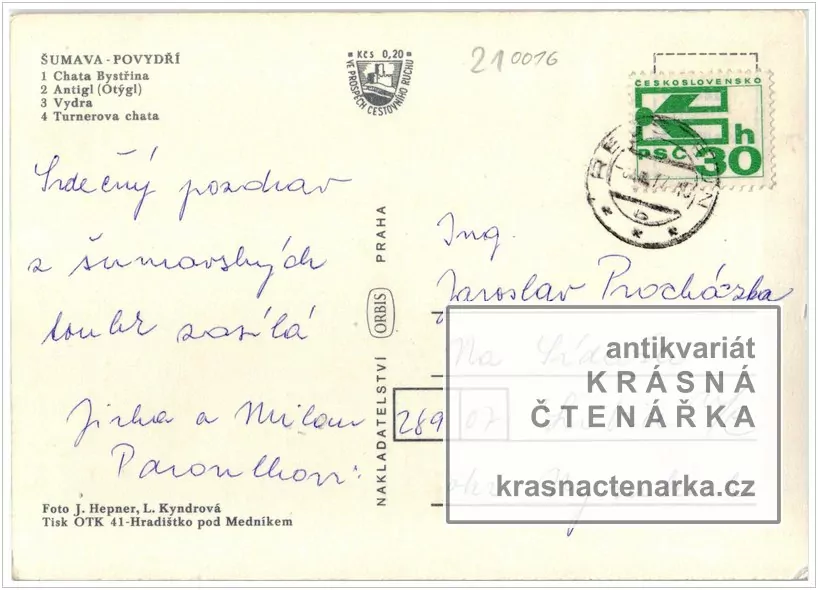 ŠUMAVA - POVYDŘÍ
1 Chata Bystřina
2 Antigl (Otýgl)
3 Vydra
4 Turnerova chata
Kčs 0,20
VE PROSPĚCH CESTOVNÍHO RUCHU
210016
ČESKOSLOVENSKO
h
PSČ 30
b
Srdečný pozdrav
z šumavských
toulek zasílá
Jirka a Milan
NAKLADATELSTVÍ ORBIS PRAHA
Ing.
Jaroslav Procházka
Na
289 07
okr.
antikvariát
KRÁSNÁ
ČTENÁŘKA
krasnactenarka.cz
Foto J. Hepner, L. Kyndrová
Tisk OTK 41-Hradištko pod Medníkem